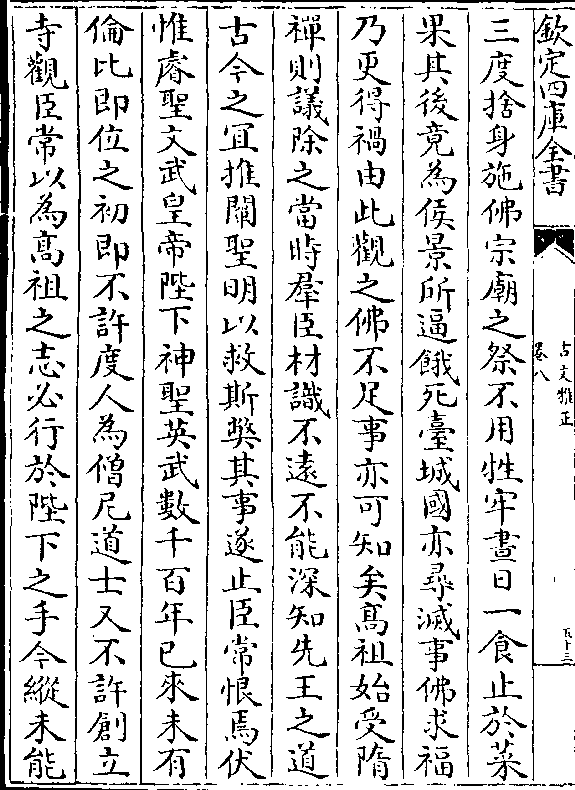 欽定四庫全書
古文雅正
卷八
五十三
三度捨身施佛宗廟之祭不用牲牢晝日一食止於菜
果其後竟為侯景所逼餓死臺城國亦尋滅事佛求福
乃更得禍由此觀之佛不足事亦可知矣髙祖始受隋
禪則議除之當時羣臣材識不遠不能深知先王之道
古今之冝推闡聖明以救斯弊其事遂止臣常恨焉伏
惟睿聖文武皇帝陛下神聖英武數千百年已來未有
倫比即位之初即不許度人為僧尼道士又不許創立
寺觀臣常以為髙祖之志必行於陛下之手今縱未能